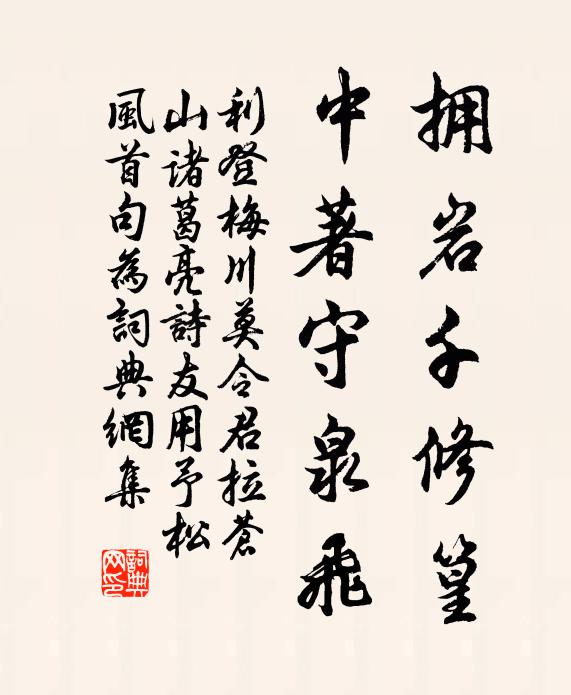 拥岩千修篁
中著守泉飛
利登梅川莫令君拉蒼
山諸葛亮詩友用予松
風首句為詞典網集
詞典网印